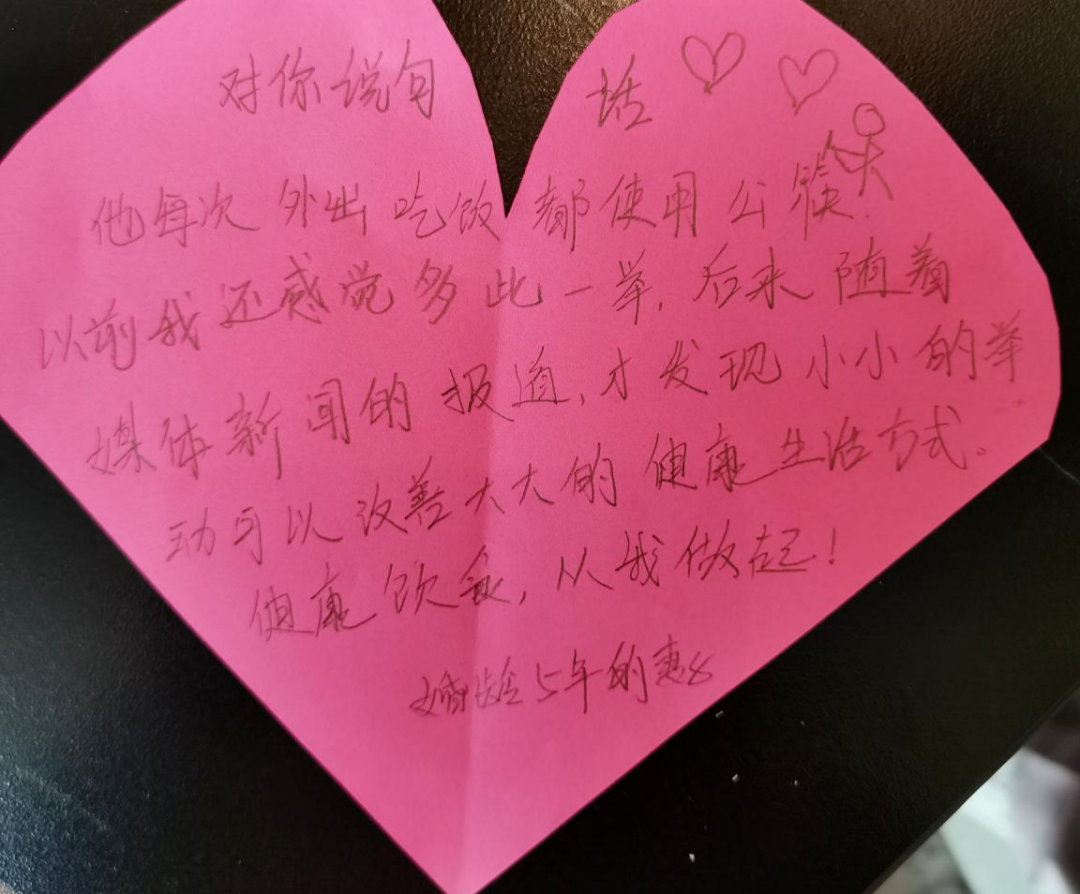 对你说句 话
他每次外出吃饭都使用公筷.
以前我还感觉多此一举,后来随着
媒体新闻的报道,才发现小小的举
动可以改善大大的健康生活方式。
健康饮食,从我做起!
婚龄5年的惠